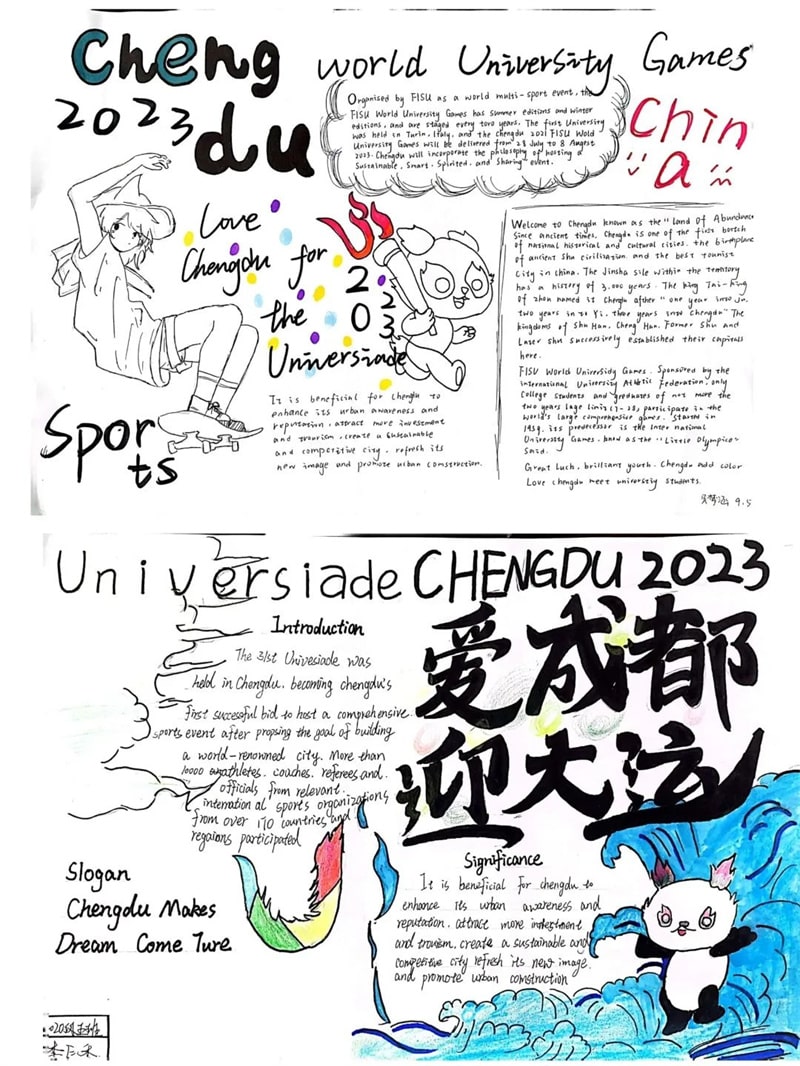 Chengdu
World University Games
2023
China
Organised by FISU as a world multi-sport event, the
FISU World University Games has summer editions and winter
editions, and are staged every two years. The first University
was held in Turin, Italy, and the Chengdu 2021 FISU Wold
University Games will be delivered from 28 July to 8 August
2023. Chengdu will incorporate the philosophy of hosting a
Sustainable, Smart, Spirited, and Sharing event.
Love
Chengdu for
the
Universiade
2023
Sports
It is beneficial for Chengdu to
enhance its urban awareness and
reputation, attract more investment
and tourism, create a sustainable
and competitive city, refresh its
new image and promote urban construction.
Welcome to Chengdu known as the "Land Of Abundance
Since ancient times. Chengdu is one of the first batch
of national historical and cultural cities, the birthplane
of ancient Shu civilization and the best tourist
City in China. The Jinsha site within the territory
has a history of 3,000 years. The king Tai-King
of Zhou named it Chengdu after "one year into Ju,
two years into Yi, three years into Chengdu" The
kingdoms of Shu Han, Cheng Han, Former Shu and
Later Shu successively established their capitals
here.
FISU World University Games. Sponsored by the
international University Athletic Federation, only
College students and graduates of not more the
two years (age limit participate in the
world's large comprehensive games. Started in
1959, its predecessor is the International
University Games, know as the "Little Olympics"
Said.
Great Luck, brilliant youth. Chengdu add color
Love chengdu meet university students.
9.5
Universiade CHENGDU 2023
Introduction
The 31st Univesiade was
held in Chengdu, becoming chengdu's
first successful bid to host a comprehensive
sports event after propsing the goal of building
a world-renowned city. More than
10000 athletes, coaches, referees and
officials from relevant
international sports organizations
from over 170 countries and
regaions participated
爱成都
迎大运
Slogan
Chengdu Makes
Dream Come Ture
Significance
It is beneficial for chengdu to
enhance its urban awareness and
reputation, attract more investment
and trouism, create a sustainable and
competitive city refresh its new image,
and promote urban comstruction